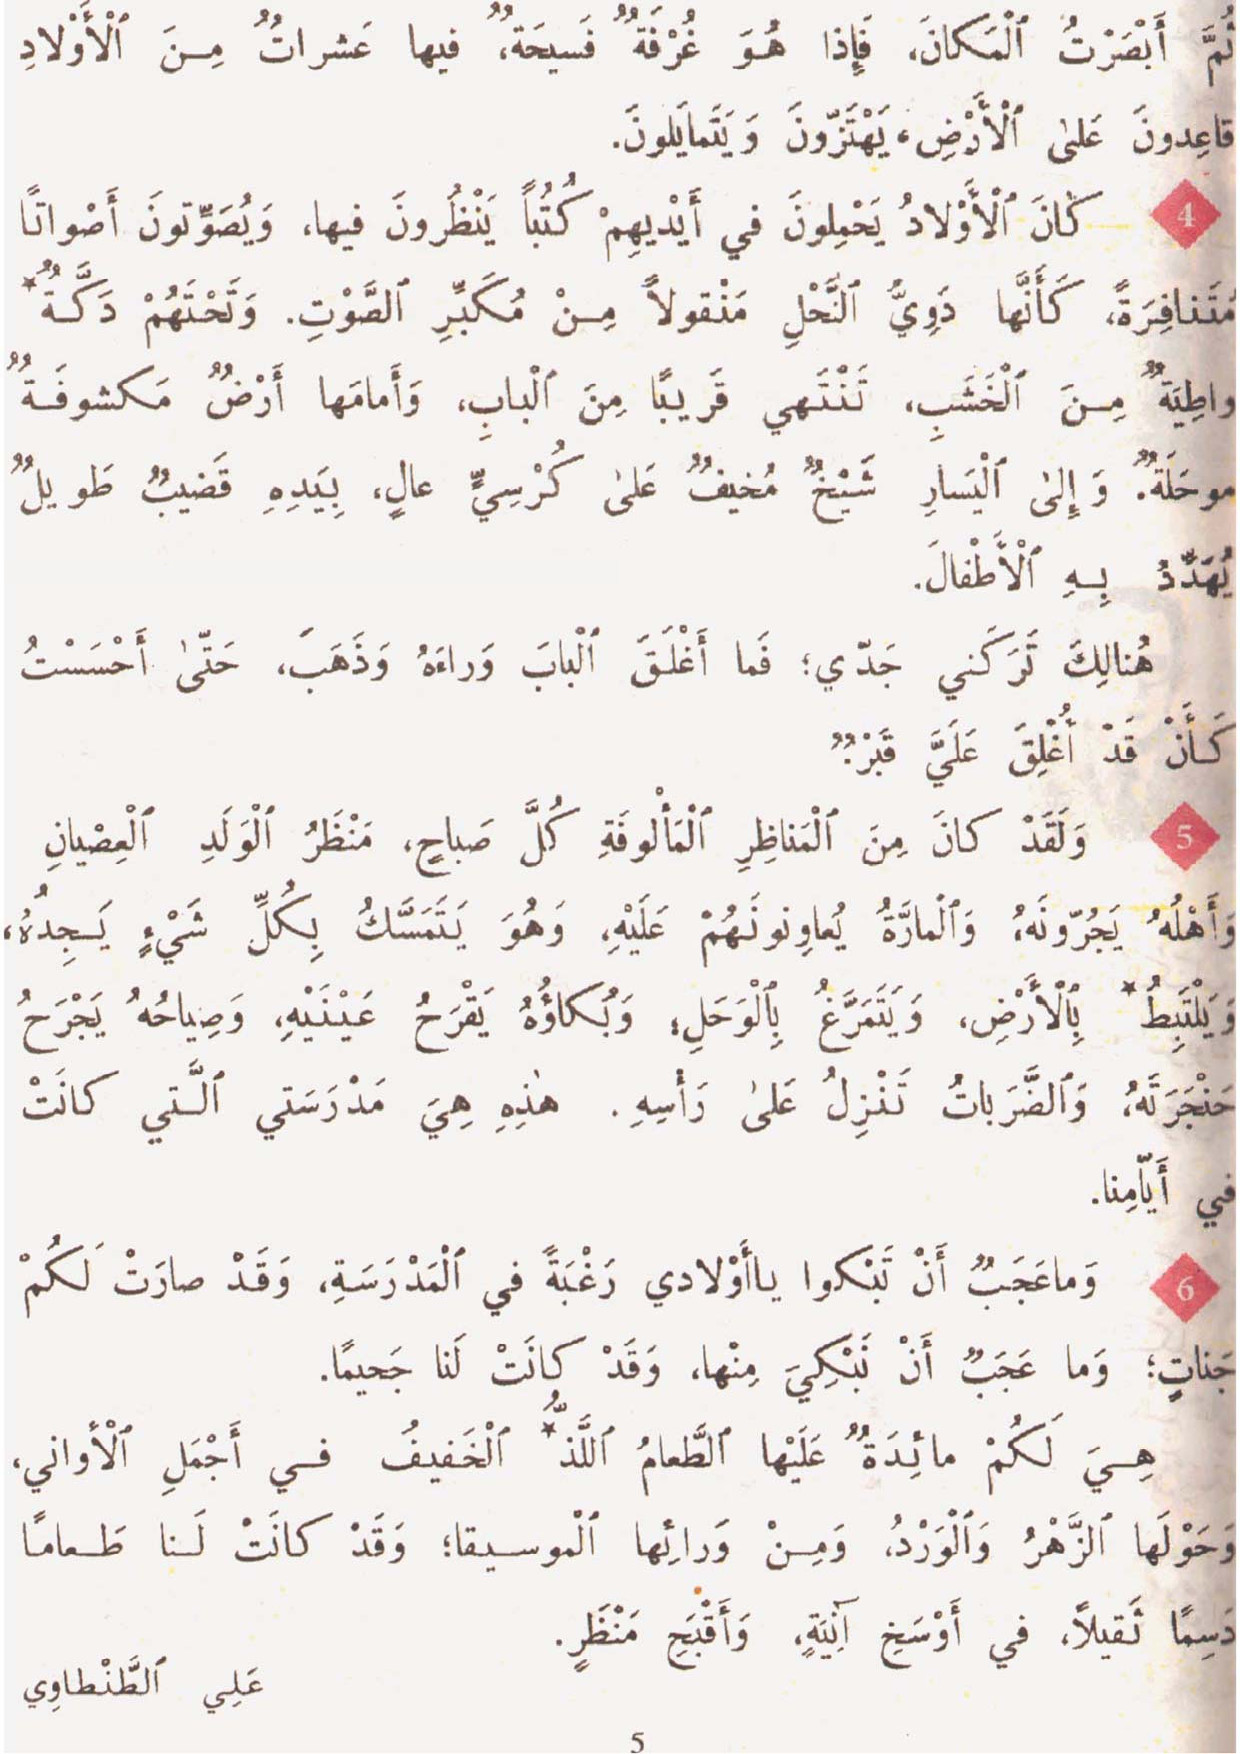 ثُمَّ أَبْصَرْتُ ٱلْمَكانَ، فَإِذا هُوَ غُرْفَةٌ فَسيحَةٌ، فيها عَشراتٌ مِنَ ٱلْأَوْلادِ
قاعِدونَ عَلىٰ ٱلْأَرْضِ، يَهْتَزّونَ وَيَتَمايَلونَ.
4 كانَ ٱلْأَوْلادُ يَحْمِلونَ في أَيْديهِمْ كُتُبًا يَنْظُرونَ فيها، وَيُصَوِّتونَ أَصْواتًا
مُتَنافِرَةً، كَأَنَّها دَوِيُّ ٱلنَّحْلِ مَنْقولاً مِنْ مُكَبِّرِ ٱلصَّوْتِ. وَتَحْتَهُمْ دَكَّةٌ*
واطِيَةٌ مِنَ ٱلْخَشَبِ، تَنْتَهي قَريبًا مِنَ ٱلْبابِ، وَأَمامَها أَرْضٌ مَكشوفَةٌ
موحَلَةٌ. وَإِلىٰ ٱلْيَسارِ شَيْخٌ مُخيفٌ عَلىٰ كُرْسِيٍّ عالٍ، بِيَدِهِ قَضيبٌ طَويلٌ
يُهَدِّدُ بِهِ ٱلْأَطْفالَ.
هُنالِكَ تَرَكَني جَدّي؛ فَما أَغْلَقَ ٱلْبابَ وَراءَهُ وَذَهَبَ، حَتّىٰ أَحْسَسْتُ
كَأَنْ قَدْ أُغْلِقَ عَلَيَّ قَبْرٌ.
5 وَلَقَدْ كانَ مِنَ ٱلْمَناظِرِ ٱلْمَأْلوفَةِ كُلَّ صَباحٍ، مَنْظَرُ ٱلْوَلَدِ ٱلْعِصْيانِ
وَأَهْلُهُ يَجُرّونَهُ، وَٱلْمارَّةُ يُعاوِنونَهُمْ عَلَيْهِ، وَهُوَ يَتَمَسَّكُ بِكُلِّ شَيْءٍ يَجِدُهُ،
وَيَلْتَبِطُ* بِٱلْأَرْضِ، وَيَتَمَرَّغُ بِٱلْوَحَلِ؛ وَبُكاؤُهُ يَقْرَحُ عَيْنَيْهِ، وَصِياحُهُ يَجْرَحُ
حَنْجَرَتَهُ، وَٱلضَّرَباتُ تَنْزِلُ عَلىٰ رَأْسِهِ. هٰذِهِ هِيَ مَدْرَسَتي ٱلَّتي كانَتْ
في أَيّامِنا.
6 وَماعَجَبٌ أَنْ تَبْكوا ياأَوْلادي رَغْبَةً في ٱلْمَدْرَسَةِ، وَقَدْ صارَتْ لَكُمْ
جَناتٍ؛ وَما عَجَبٌ أَنْ نَبْكِيَ مِنْها، وَقَدْ كانَتْ لَنا جَحيمًا.
هِيَ لَكُمْ مائِدَةٌ عَلَيْها ٱلطَّعامُ ٱللَّذُّ* ٱلْخَفيفُ في أَجْمَلِ ٱلْأَواني،
وَحَوْلَها ٱلزَّهْرُ وَٱلْوَرْدُ، وَمِنْ وَرائِها ٱلْموسيقا؛ وَقَدْ كانَتْ لَنا طَعامًا
دَسِمًا ثَقيلاً، في أَوْسَخِ آنِيَةٍ، وَأَقْبَحِ مَنْظَرٍ.
عَلِي ٱلطَّنْطاوِي
5